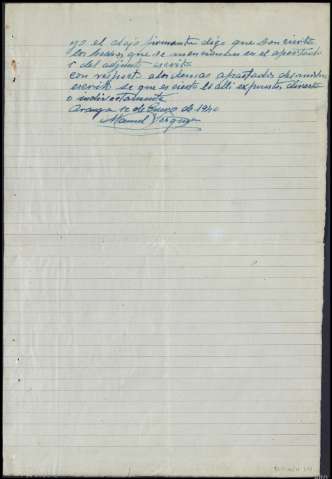 yo el abajo firmante digo que son ciertos
los hechos que se mencionan en el apartado
1 del adjunto escrito
con respecto a los demas apartados del mismo
escrito se que es cierto lo alli expuesto directa
o indirectamente
10 de Enero de 1940
Manuel